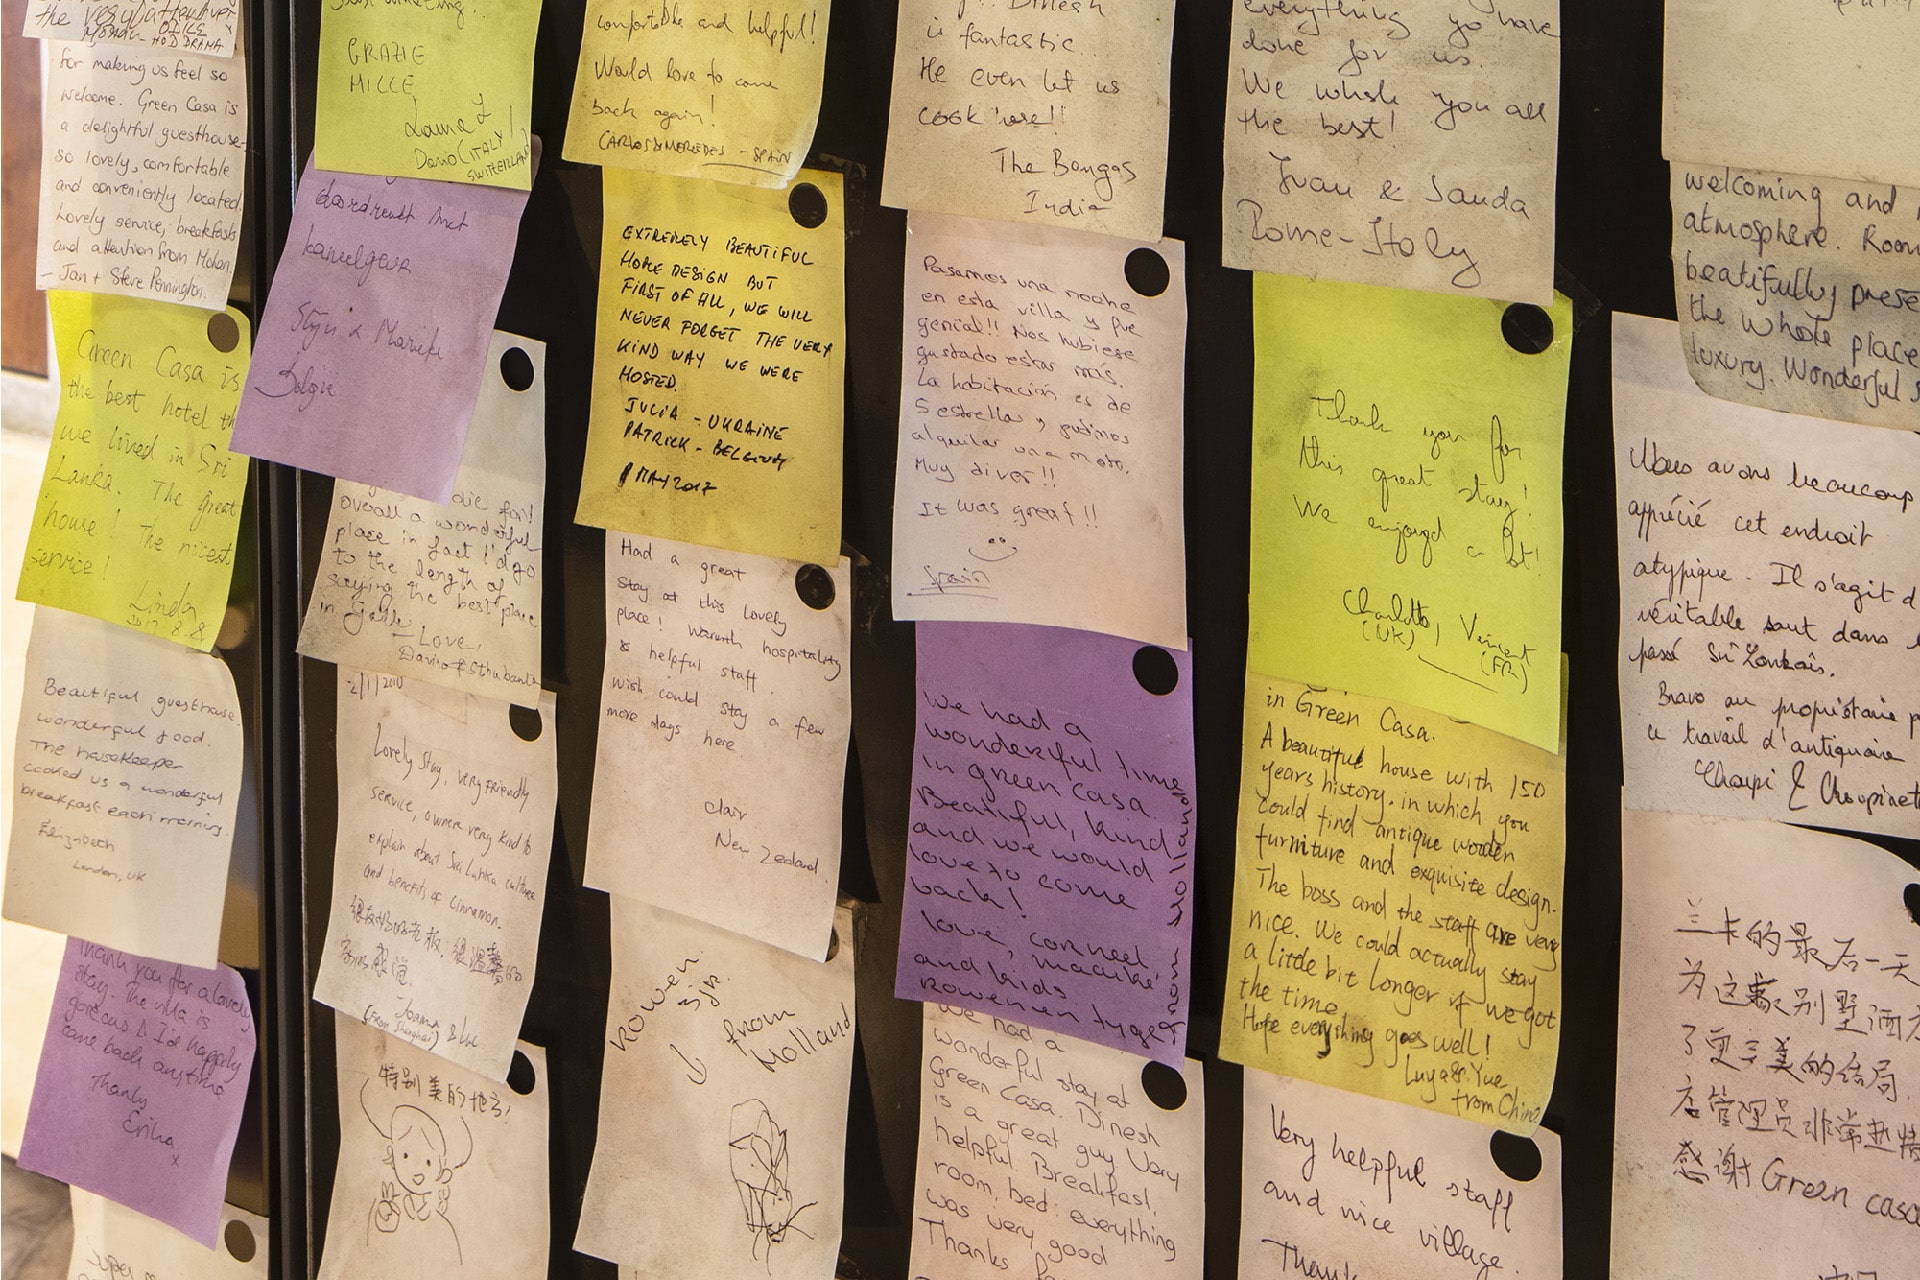 for making us feel so
welcome. Green Casa is
a delightful guesthouse-
so lovely, comfortable
and conveniently located.
Lovely service, breakfasts
and attention from Mohan
- Jan + Steve Pennington.
Green Casa is
the best hotel th
we lived in Sri
Lanka. The great
house! The nicest
service!
Linda
Beautiful guesthouse.
wonderful food.
The housekeeper
cooked us a wonderful
breakfast each morning.
London, UK
Thank you for a lovely
stay. The villa is
I'd happily
come back anytime
Erika
x
GRAZIE
MILLE
(ITALY
SWITZERLAND)
Stijn &
België
die for!
overall a wonderful
place in fact I'd go
to the length of
saying the best place
in Galle
Love,
Lovely Stay, very friendly
service, owner very kind to
explain about Sri Lanka culture
and benefits of cinnamon.
Joanna &
(From Shanghai)
特别美的地方!
comfortable and helpful!
Would love to come
back again!
CARLOS & MERCEDES - SPAIN
EXTREMELY BEAUTIFUL
HOME DESIGN BUT
FIRST OF ALL, WE WILL
NEVER FORGET THE VERY
KIND WAY WE WERE
HOSTED.
JULIA - UKRAINE
PATRICK - BELGIUM
MAY 2017
Had a great
stay at this lovely
place! Warmth hospitality
& helpful staff.
Wish could stay a few
more days here
Clair
New Zealand.
Rowen
5jr.
from
Holland
Dinesh
is fantastic
He even let us
cook
The Bangas
India
Pasamos una noche
en esta villa y fue
genial!! Nos hubiese
gustado estar más.
La habitación es de
5 estrellas y pudimos
alquilar una moto.
Muy diver!!
It was great!!
Spain
We had a
wonderful time
in green casa
Beatiful, kind
and we would
love to come
back!
love, corneel
and kids
Rowen en Tyge
from Holland
We had a
wonderful stay at
Green Casa. Dinesh
is a great guy Very
helpful Breakfast,
room, bed: everything
was very good
Thanks
everything yo have
done for us.
We whish you all
the best!
Ivan &
Rome-Italy
Thank you for
this great stay!
We enjoyed a lot!
Charlotte, Vincent
(UK)
(FR)
in Green Casa.
A beautiful house with 150
years history. in which you
could find antique wooden
furniture and exquisite design.
The boss and the staff are very
nice. We could actually stay
a little bit longer if we got
the time
Hope everything goes well!
Yue
from China
Very helpful staff
and nice village.
Thank
welcoming and
atmosphere. Room
beatifully prese
the whole place
luxury. Wonderful s
Nous avons beaucoup
apprécié cet endroit
atypique. Il s'agit d
véritable saut dans l
passé Sri Lankais.
Bravo au propriétaire p
ce travail d'antiquaire
兰卡的最后一天
为这家别墅酒店
了更完美的结局
店管理员非常热情
感谢 Green casa